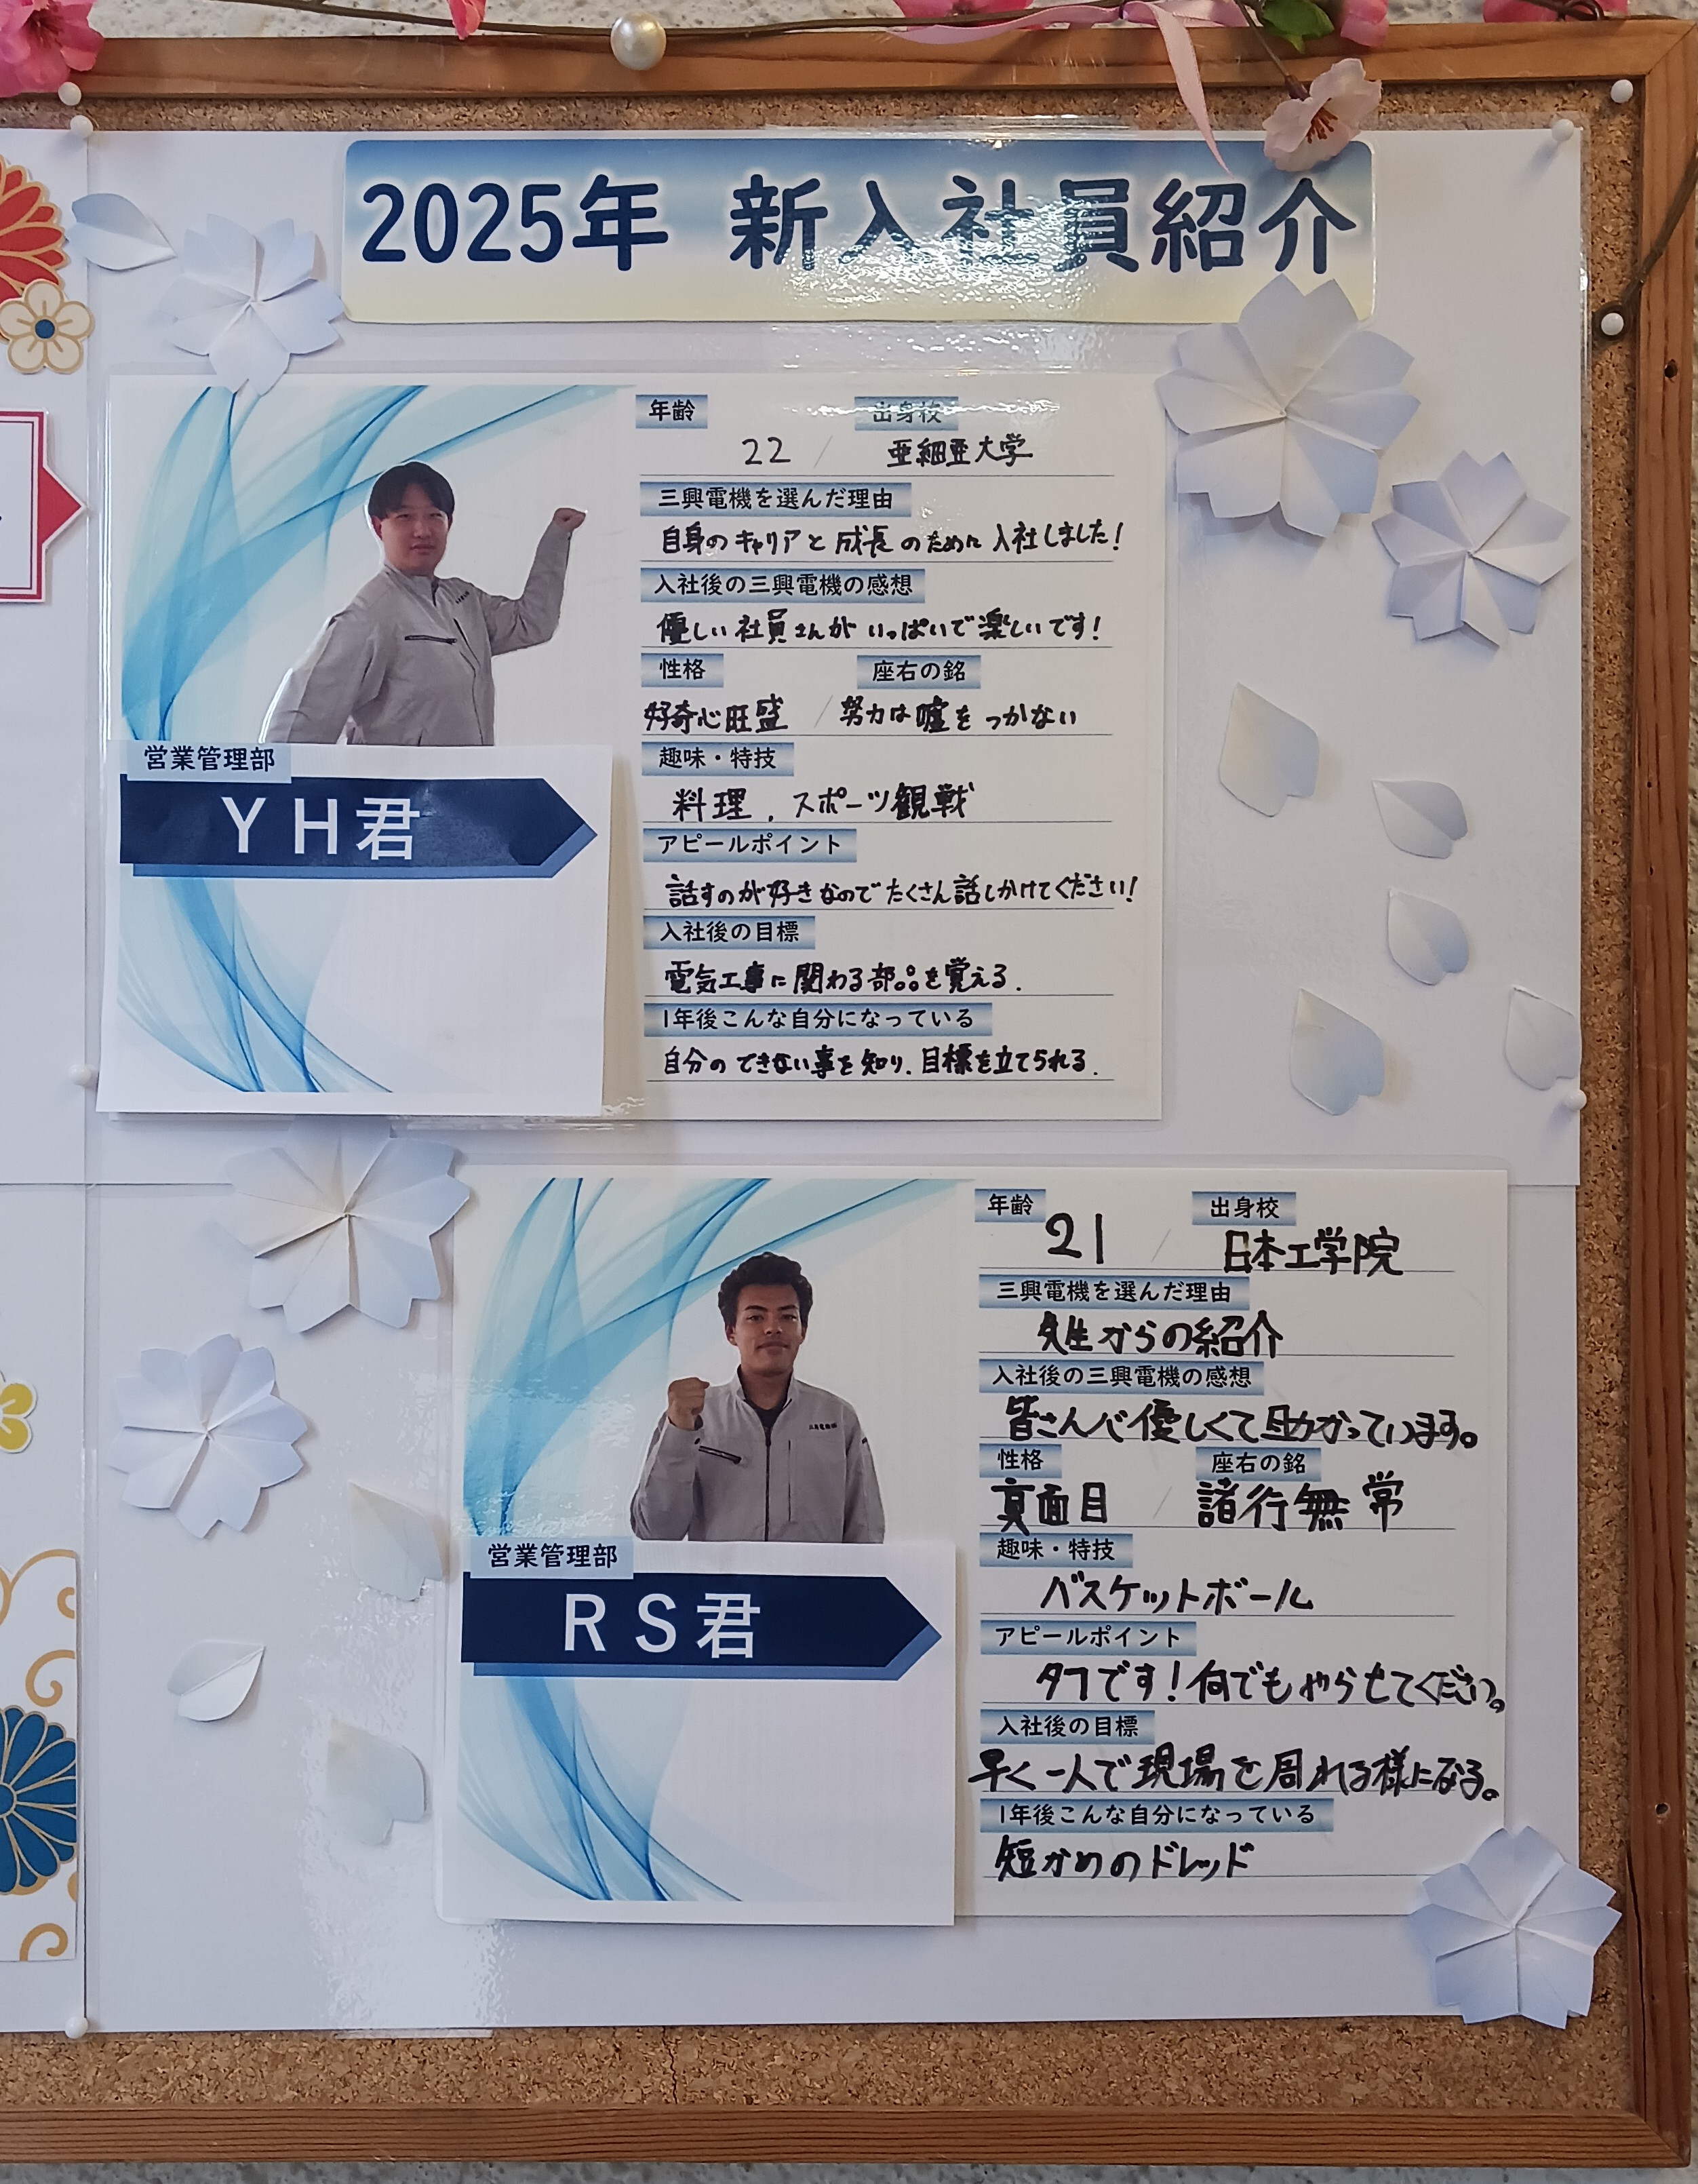 2025年 新入社員紹介
年齢 出身校
22 / 亜細亜大学
三興電機を選んだ理由
自身のキャリアと成長のために入社しました!
入社後の三興電機の感想
優しい社員さんがいっぱいで楽しいです!
性格 座右の銘
好奇心旺盛 / 努力は嘘をつかない
趣味・特技
料理、スポーツ観戦
アピールポイント
話すのが好きなのでたくさん話しかけてください!
入社後の目標
電気工事に関わる部品を覚える.
1年後こんな自分になっている
自分のできない事を知り、目標を立てられる.
営業管理部
YH君
年齢 出身校
21 / 日本工学院
三興電機を選んだ理由
先生からの紹介
入社後の三興電機の感想
皆さんが優しくて助かっています。
性格 座右の銘
真面目 / 諸行無常
趣味・特技
バスケットボール
アピールポイント
タフです!何でもやらせてください。
入社後の目標
早く一人で現場を周れる様になる。
1年後こんな自分になっている
短かめのドレッド
営業管理部
RS君